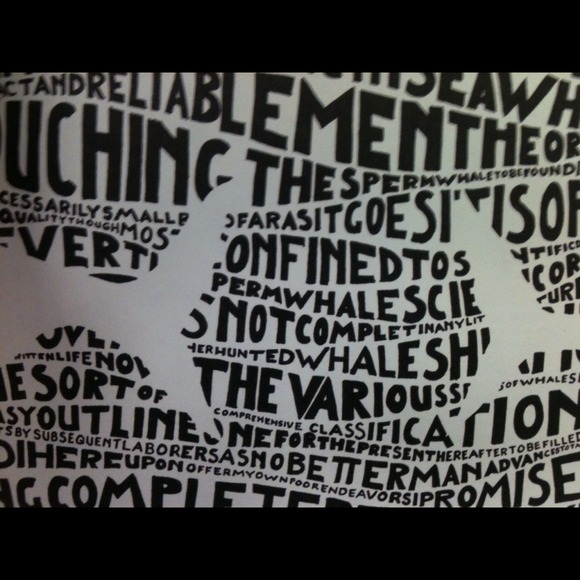 SEAWH
CTANDRELIABLEMENTHEOR
UCHING THESPERMWHALETOBEFOUND
CESSARILYSMALL OFARASITGOESITISOF
QUALITYTHOUGHMOST
VERTI CONFINEDTOS NTIFIC
PERMWHALESCIE COR
S NOTCOMPLETINANYLIT
ITTENLIFENOW HERHUNTEDWHALESH
ESORTOF THE VARIOUSS SOFWHALES
ASYOUTLINE COMPREHENSIVE CLASSIFICATION
TSBYSUBSEQUENTLABORERSASNOBETTERMANADVANCESTOTA
ONEFORTHEPRESENTHEREAFTERTOBEFILLED
DIHEREUPONOFFERMYOWNPOORENDEAVORSIPROMISE
NGCOMPLETE